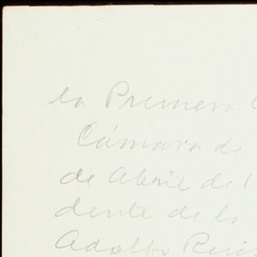 la Primera
Cámara de
de Abril de 1
dente de la
Adolfo Ruiz